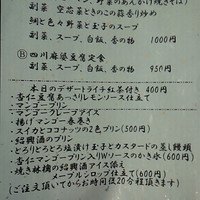 副菜 空芯菜ときのこの蒜香り炒め
鯛と色々野菜と玉子のスープ
副菜、スープ、白飯、香の物 1000円
Ⓑ 四川麻婆豆腐定食
副菜、スープ、白飯、香の物 950円
本日のデザートライチ紅茶付き 400円
・杏仁豆腐あっさりレモンソース仕立て
・マンゴープリン
・マンゴークレープアイス
・揚げマンゴー春巻き
・スイカとココナッツの2色プリン(500円)
・紹興酒のプリン
・とろりとろとろ塩漬け玉子とカスタードの蒸し饅頭
・杏仁マンゴープリン入りWソースのかき氷(600円)
・焼き林檎の紹興酒アイス添え
シロップ仕立て(600円)
(ご注文頂いてからお時間位20分程頂きます)